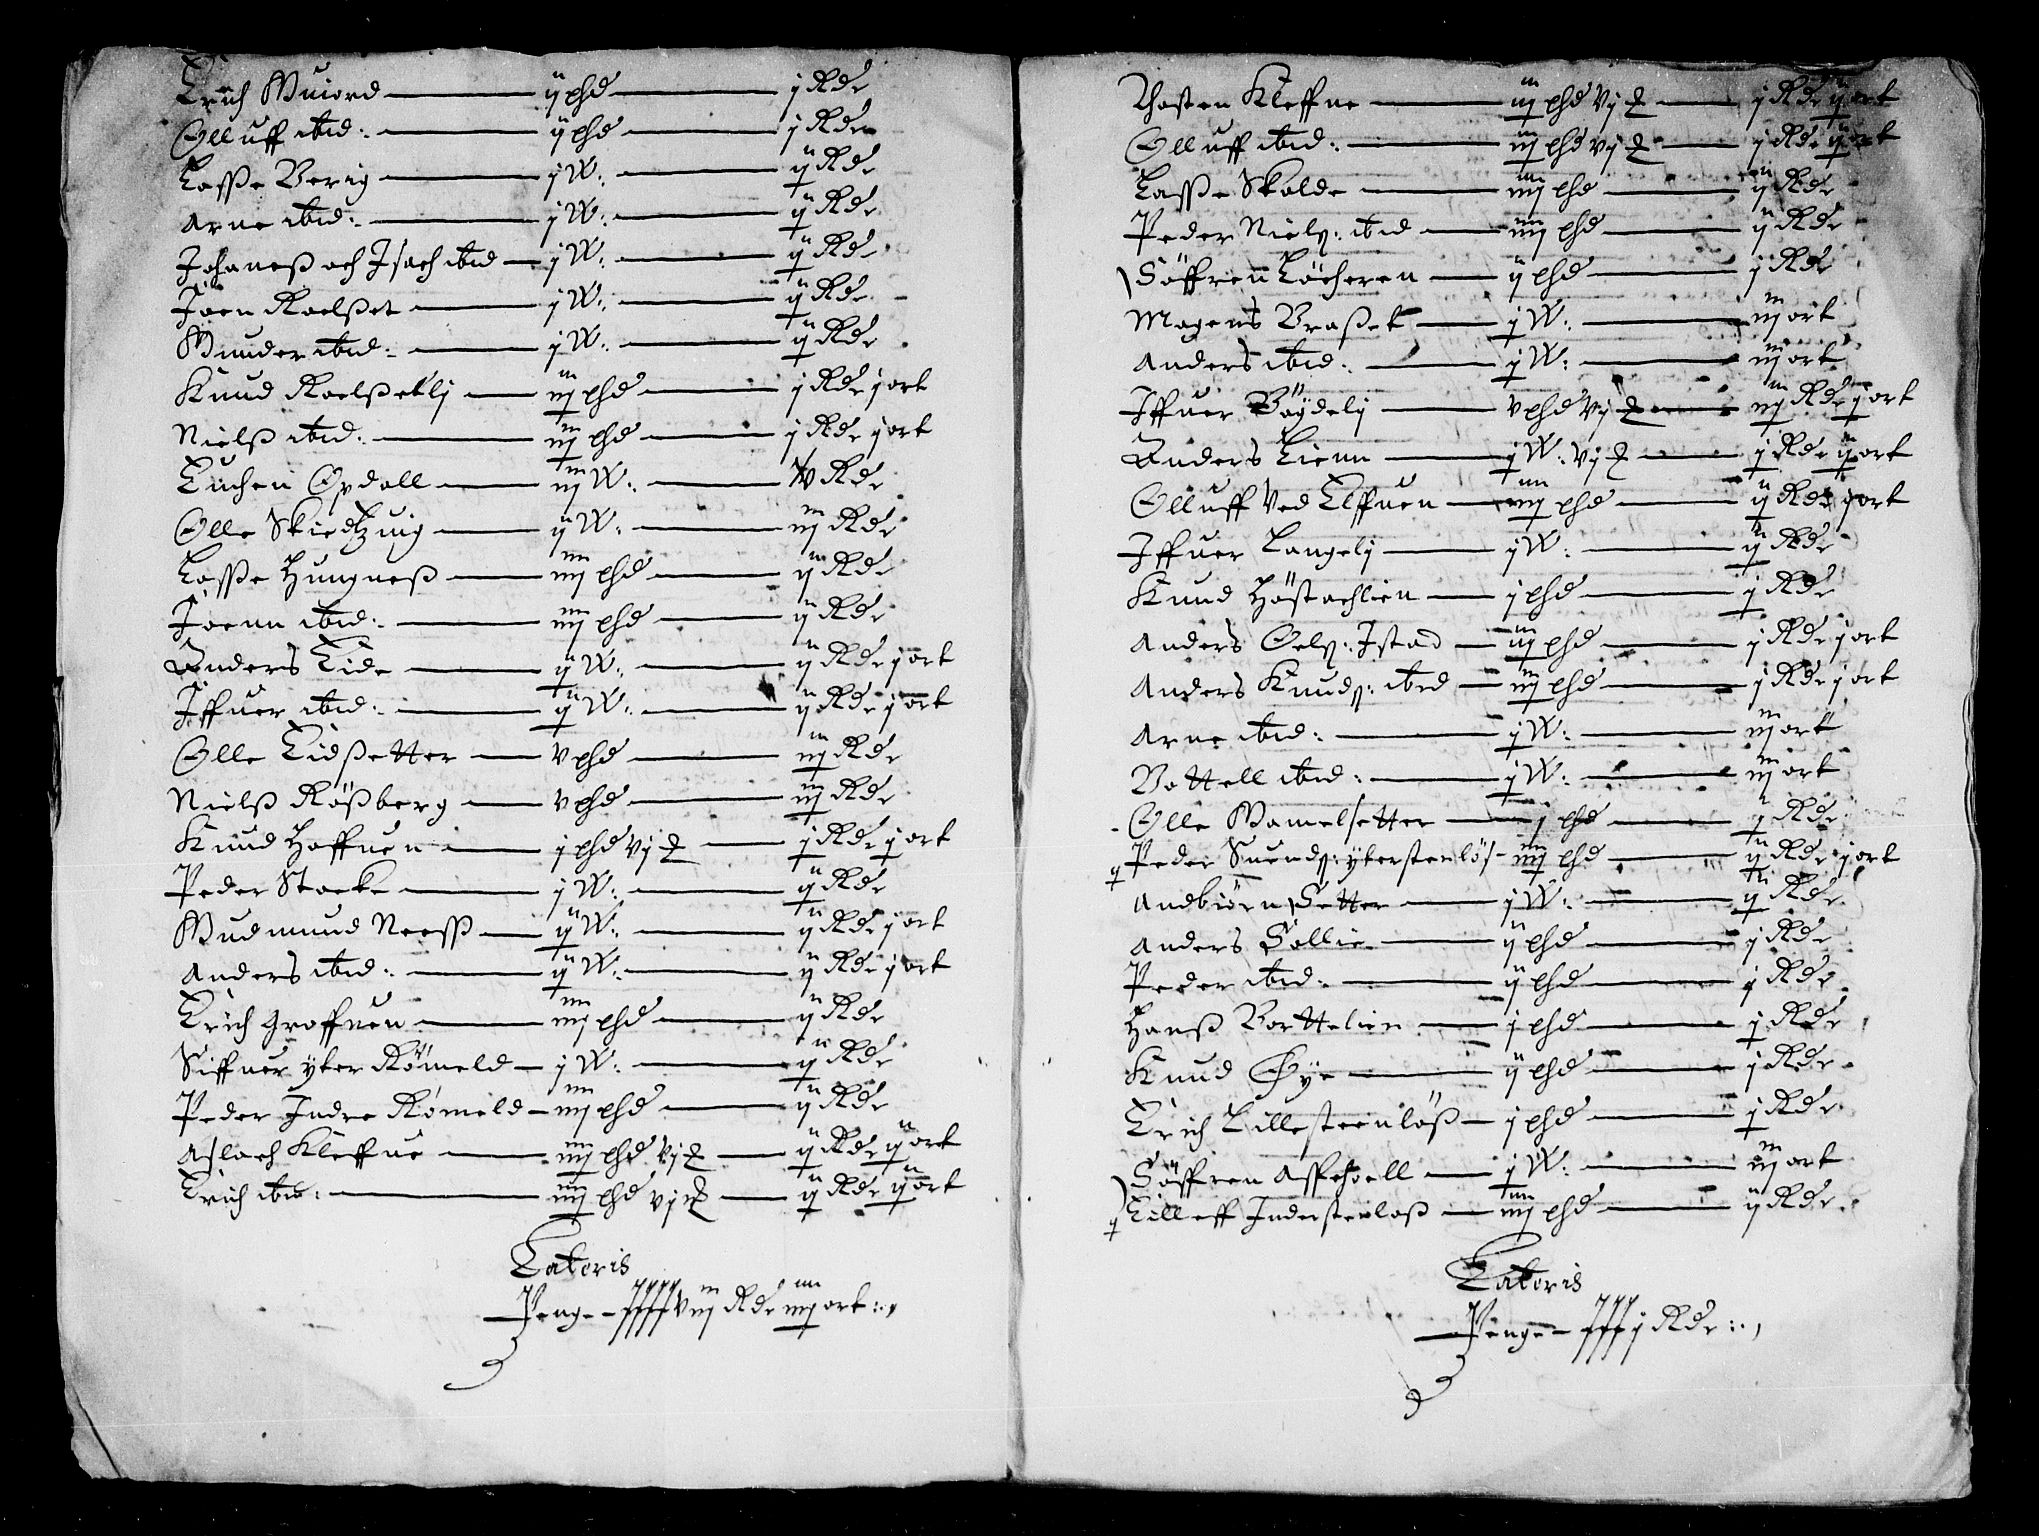 Erich Muiord — ij phd — j Rdr
Olluff ibid: — ij phd — j Rdr
Lasse Berig — j W: — ij Rdr
Arne ibid: — j W: — ij Rdr
Johaneß och Isach ibid — j W: — ij Rdr
Joen Roelßet — j W: — ij Rdr
Gunder ibid: — j W: — ij Rdr
Knud Roelßetlj — iij phd — j Rdr j ort
Nielß ibid: — iij phd — j Rdr j ort
Opdall — iij W: — V Rdr
Olle — ij W: — iij Rdr
Lasse Hungneß — iiij phd — ij Rdr
Joenn ibid: — iiij phd — ij Rdr
Anders Eide — ij W: — ij Rdr j ort
Iffuer ibid: — ij W: — ij Rdr j ort
Olle Eidßetter — v phd — iij Rdr
Nielß Rößberg — v phd — iij Rdr
Knud Hoffuen — j phd vj — j Rdr j ort
Peder Stocke — j W: — ij Rdr
Gudmund Neess — ij W: — ij Rdr j ort
Anders ibid: — ij W: — ij Rdr j ort
Erich Groffuen — iiij phd — ij Rdr
Siffuer yter Römeld — j W: — ij Rdr
Peder Indre Römeld — iiij phd — ij Rdr
Aslach Kleffue — iiij phd vj — ij Rdr ij ort
Erich ibid: — iiij phd vj — ij Rdr ij ort
Lateris
Penge — Rdr iiij ort:
Thosten Kleffne — iij phd vj — j Rdr ij ort
Olluff ibid: — iij phd vj — j Rdr ij ort
Lasse Skolde — iiij phd — ij Rdr
Peder Niels: ibid — iiij phd — ij Rdr
Söffren Löcheren — ij phd — j Rdr
Mogens Braßet — j W: — iij ort
Anders ibid: — j W: — iij ort
Iffuer Böydelj — v phd vj — iij Rdr j ort
Anders Lienn — j W: vj — j Rdr ij ort
Olluff Ved Elffuen — iiij phd — ij Rdr j ort
Iffuer Langelj — j W: — ij Rdr
Knud Höstachlien — j phd — j Rdr
Anders Oels: Istad — iij phd — j Rdr j ort
Anders Knuds: ibid — iij phd — j Rdr j ort
Arne ibid: — j W: — iij ort
Bottell ibid: — j W: — iij ort
Olle Mamelsetter — j phd — j Rdr
Peder Suends: ytersteenlös — iiij phd — ij Rdr j ort
Andbiörn Setter — j W: — ij Rdr
Anders Sollie — ij phd — j Rdr
Peder ibid: — ij phd — j Rdr
Hanß Bortelien — j phd — j Rdr
Knud Öye — ij phd — j Rdr
Erich Lillesteenlöß — j phd — j Rdr
Söffren — j W: — iij ort
Eilleff Indersteelöß — iiij phd — ij Rdr
Lateris
Penge — j Rdr: